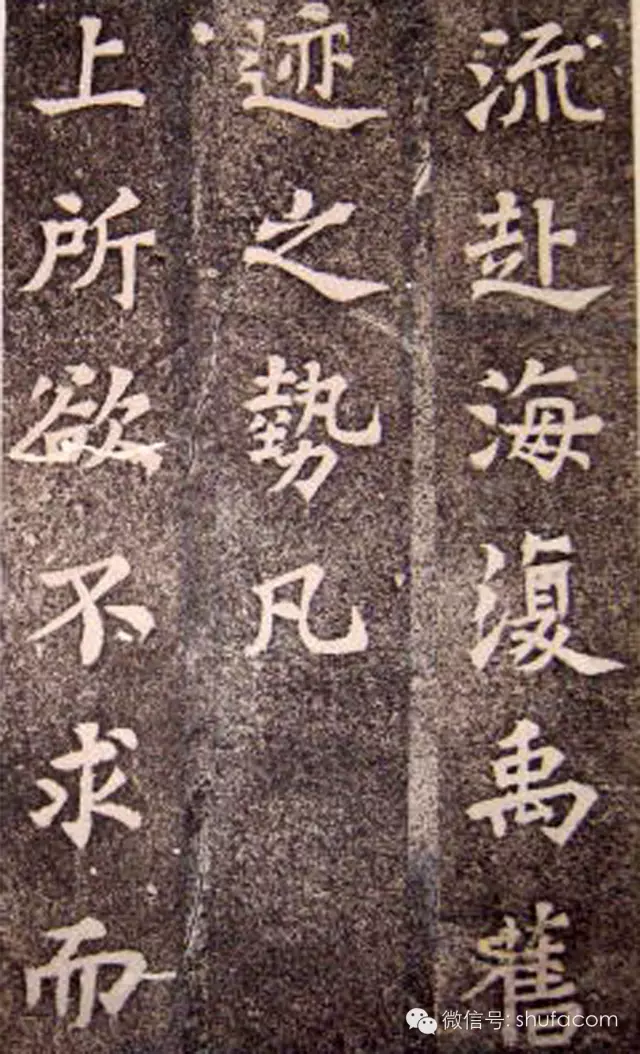 流赴海復禹舊
迹之勢凡
上所欲不求而
微信号: shufacom